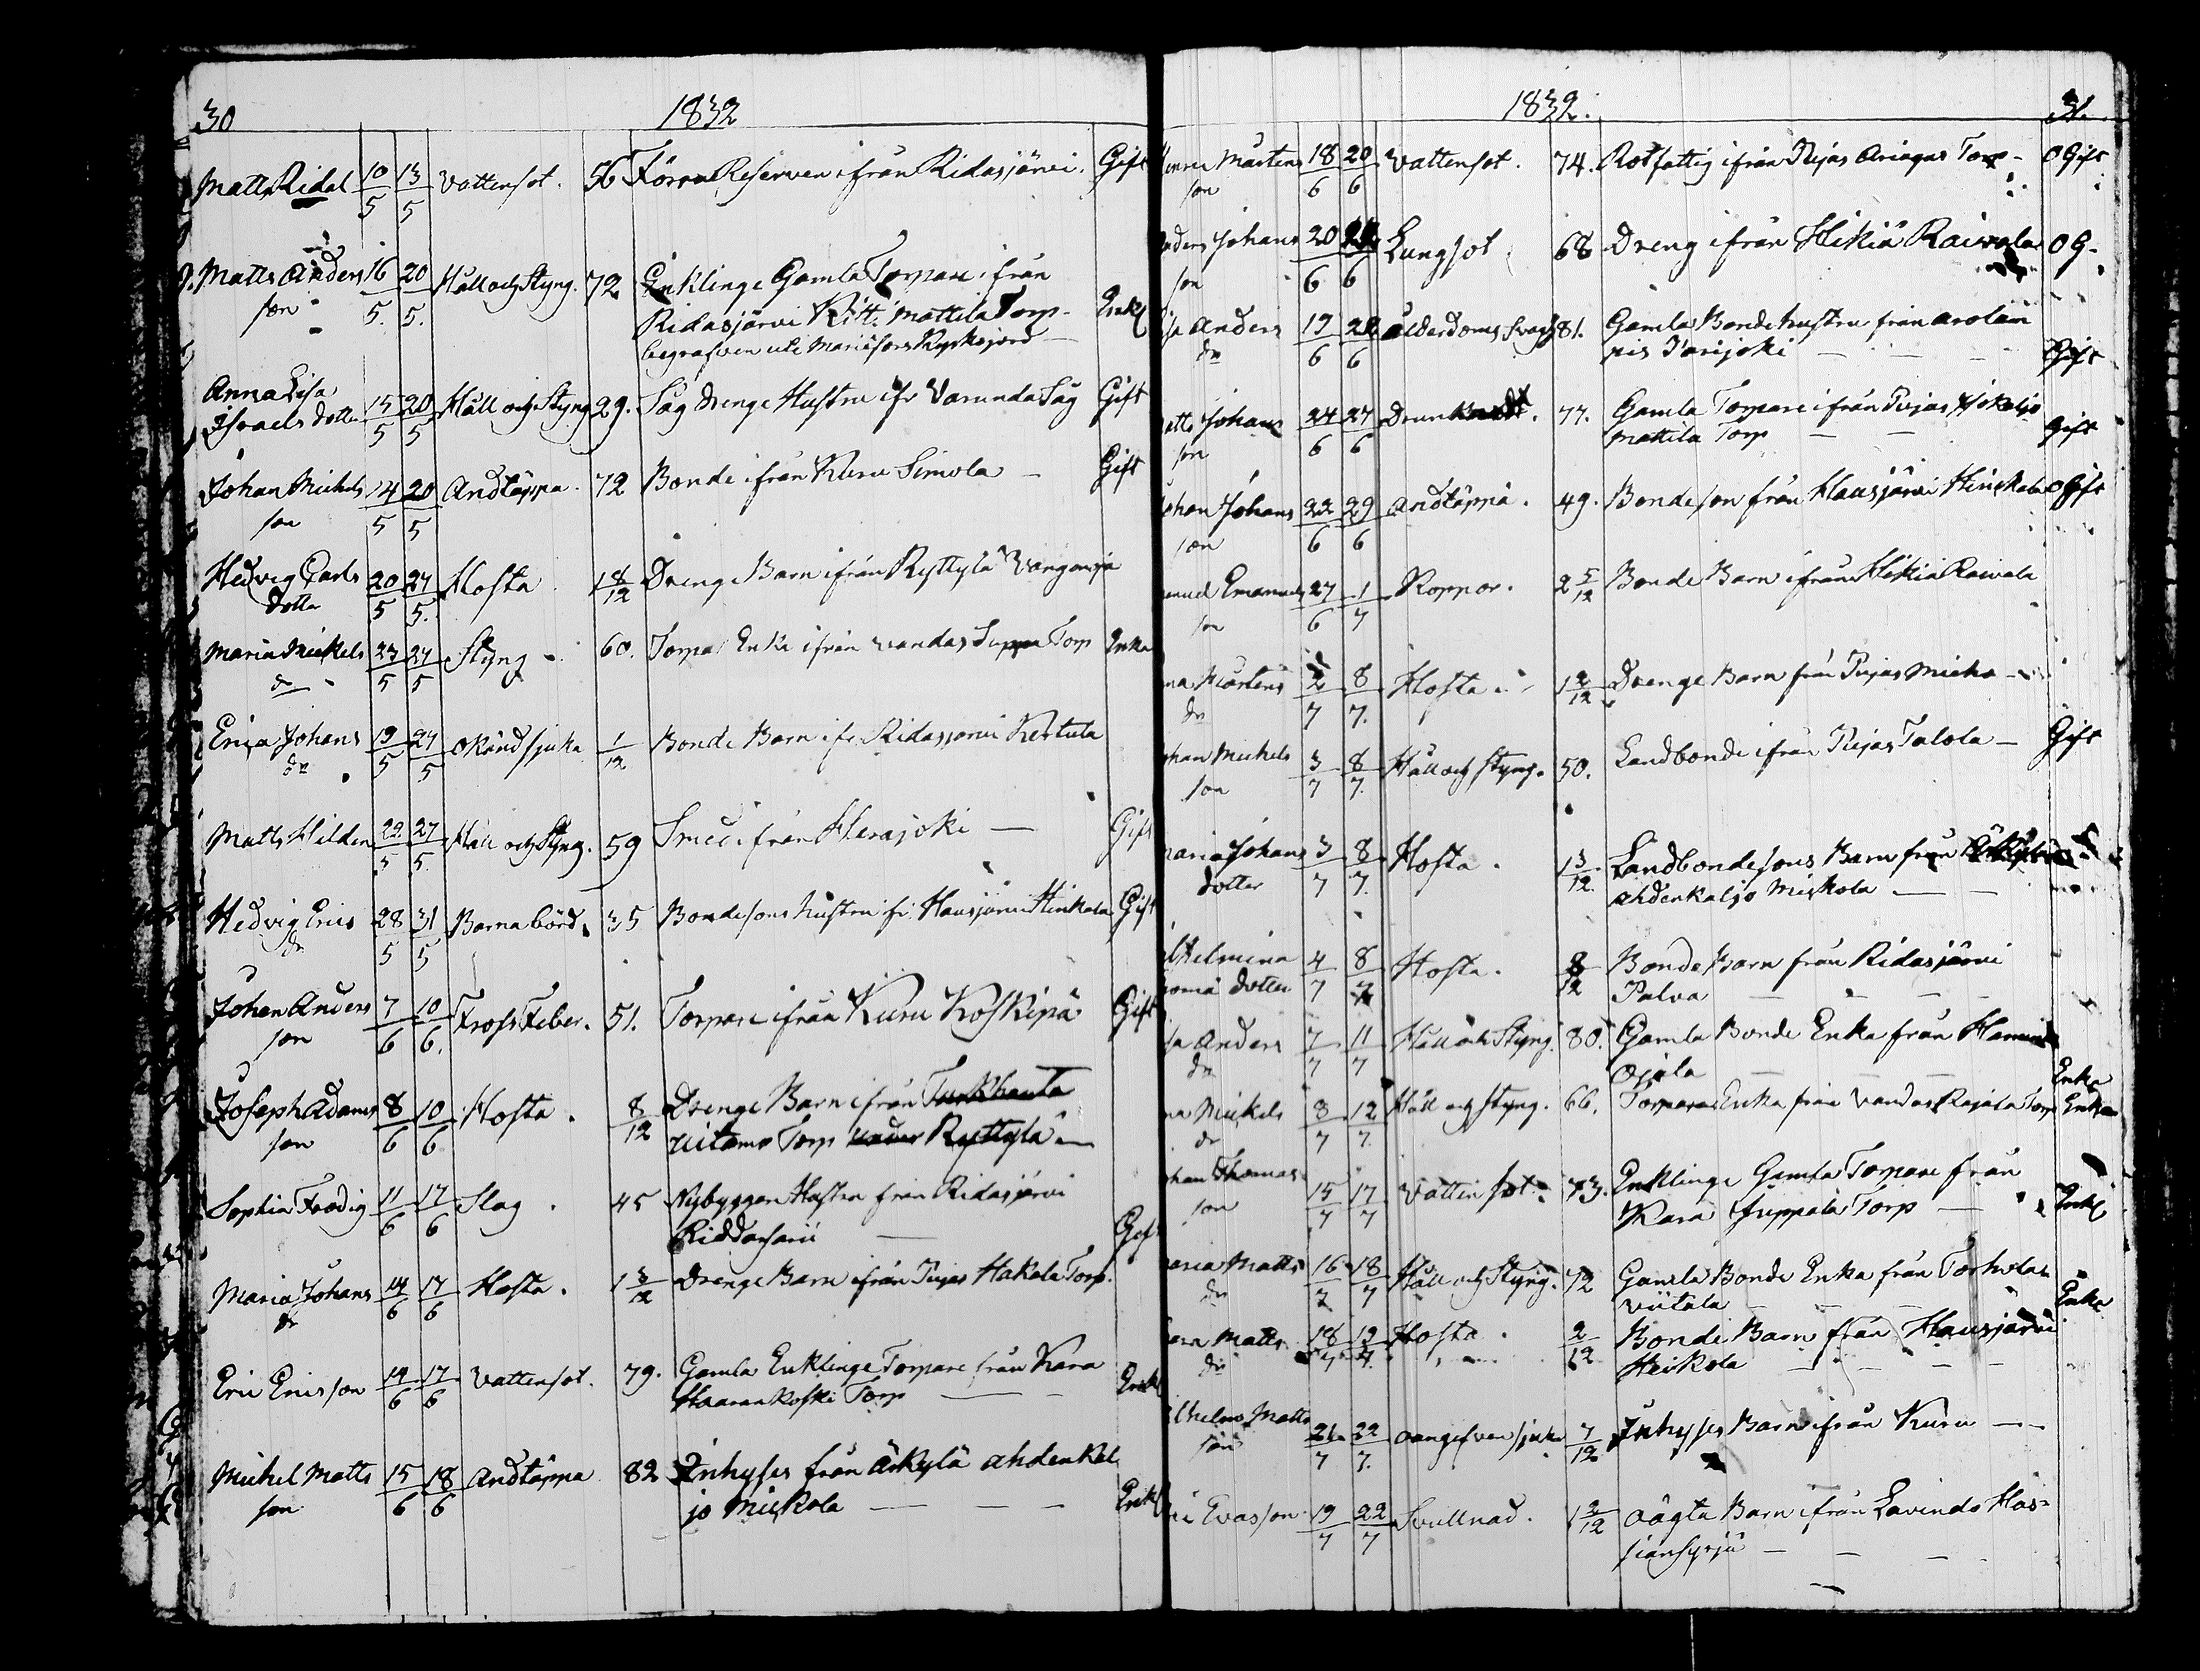 30 1832
Matts Ridal 10/5 13/5 Vattensot. 56 Förra Reserven ifrån Ridasjärvi. Gift
Matts Anders 16/5. 20/5. Håll och Styng. 72 Enklinge Gamla Torpare ifrån
son Ridasjärvi Mattila Torp- Enkl
begrafven
Anna Lisa
Israels dotter 15/5 20/5 Håll och Styng 29. Såg Drengs Hustru ifr Varunda Såg Gift
Johan Michels 14/5 20/5 Andtäppa. 72 Bonde ifrån Kuru Simola — Gift
son
Hedvig Carls 20/5 27/5. Hosta. 1 8/12 Drengs Barn ifrån Ryttylä
dotter
Maria Mickels 23/5 27/5 Styng 60. Torpar Enka ifrån Vandas Torp Enka
dr
Erica Johans 19/5 27/5 Okändsjuka 1/12 Bonde Barn ifr Ridasjärvi Kertula
dr
Matts Hilden 22/5 27/5. Håll och Styng. 59 Smed ifrån Herajoki — Gift
Hedvig Erics 28/5 31/5 Barnabörd. 35 Bondesons hustru fr. Hausjärvi Gift
dr
Johan Anders 7/6 10/6. Fross Feber. 51. Torpare ifrån Kuru Koskipä Gift
son
Joseph Adams 8/6 10/6 Hosta. 8/12 Drenge Barn ifrån Turkhauta
son Torp under Ryttylä —
Sophia 11/6 17/6 Slag. 45 Nybyggare Hustru från Ridasjärvi
Gift
Maria Johans 14/6 17/6 Hosta. 1 3/12 Drenge Barn ifrån Pujas Hakala Torp.
dr
Eric Ericsson 14/6 17/6 Vattensot. 79. Gamla Enklinge Torpare från Kara
Haarankoski Torp — Enkl
Michel Matts 15/6 18/6 Andtäppa 82 Inhyses från Äikylä ahdenkal
son jo Mickola — — — Enkl
1832. 31.
Mårtens 18/6 20/6 Vattensot. 74. Rotfattig ifrån Torp- O Gift
son
Johans 20/6 Lungsot. 68 Dreng ifrån Hikiä Raivala O G-
son
Anders 19/6 Ålderdoms Svagh 81. Gamla Bondehustru från
dr Gift
Johans 24/6 27/6 77. Gamla Torpare ifrån
son Mattila Torp — — Gift
Johans 22/6 29/6 Andtäppa. 49. Bondeson från Hausjärvi O Gift
son
Emanuels 27/6 1/7 Koppor. 2 5/12 Bonde Barn ifrån Hikiä Raivala
son
Mårtens 2/7 8/7. Hosta 1 2/12 Drenge Barn från Pujas
dr
Michels 3/7 8/7. Håll och Styng. 50. Landbonde ifrån Pujas Talola — Gift
son
Maria Johans 3/7 8/7. Hosta. 1 3/12. Landbondesons Barn från
dotter ahdenkaljo Mickola — —
4/7 8/7 Hosta. 8/12 Bonde Barn från Ridasjärvi
dotter Palva — — —
Anders 7/7 11/7 Håll och Styng. 80. Gamla Bonde Enka från
dr Ojala Enka
Mickels 8/7 12/7. Håll och Styng. 66. Torpares Enka från Vandas Rajala Torp Enka
dr
Thomas 15/7 17/7 Vattensot. 73. Enklinge Gamla Torpare från
son Kara Juppala Torp — Enkl
Maria Matts 16/7 18/7 Håll och Styng. 72 Gamla Bonde Enka från Torhola
dr Viitala Enka
Matts 18/7 19/7. Hosta. 2/12 Bonde Barn från Hausjärvi
dr Heikola — — — —
Matts
son 21/7 22/7. oangifven sjuka 7/12 Inhyses Barn ifrån Kuru —
Evasson. 19/7 22/7 Svullnad. 1 2/12 oägta Barn ifrån